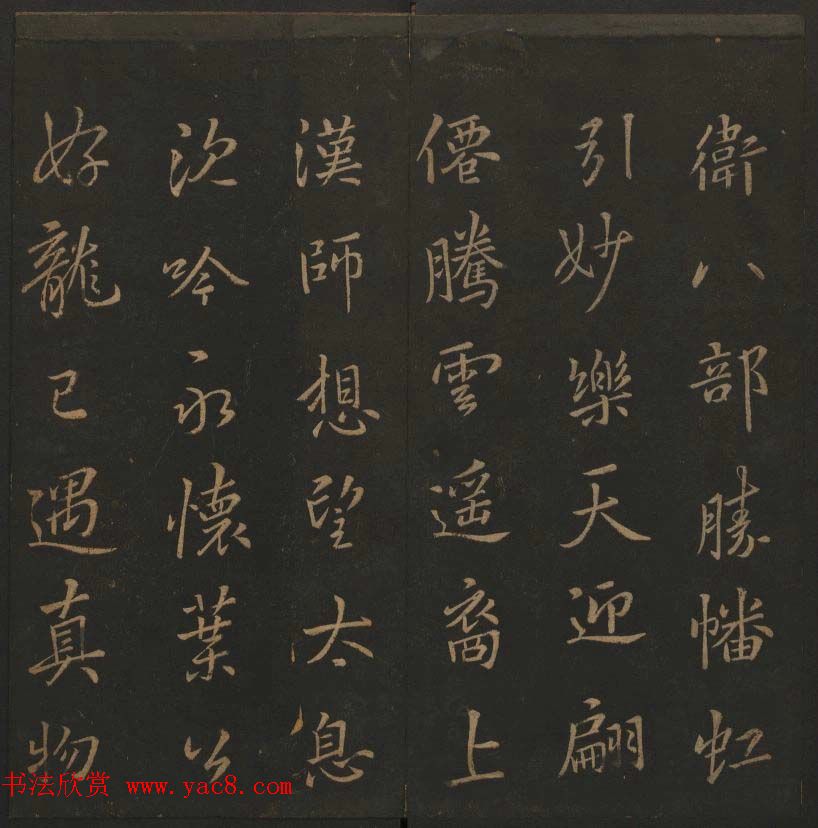 衛八部勝幡虹
引妙樂天迎翩
僊騰雲遥裔上
漢師想望太息
沈吟永懷葉公
好龍已遇真物
书法欣赏 www.yac8.com